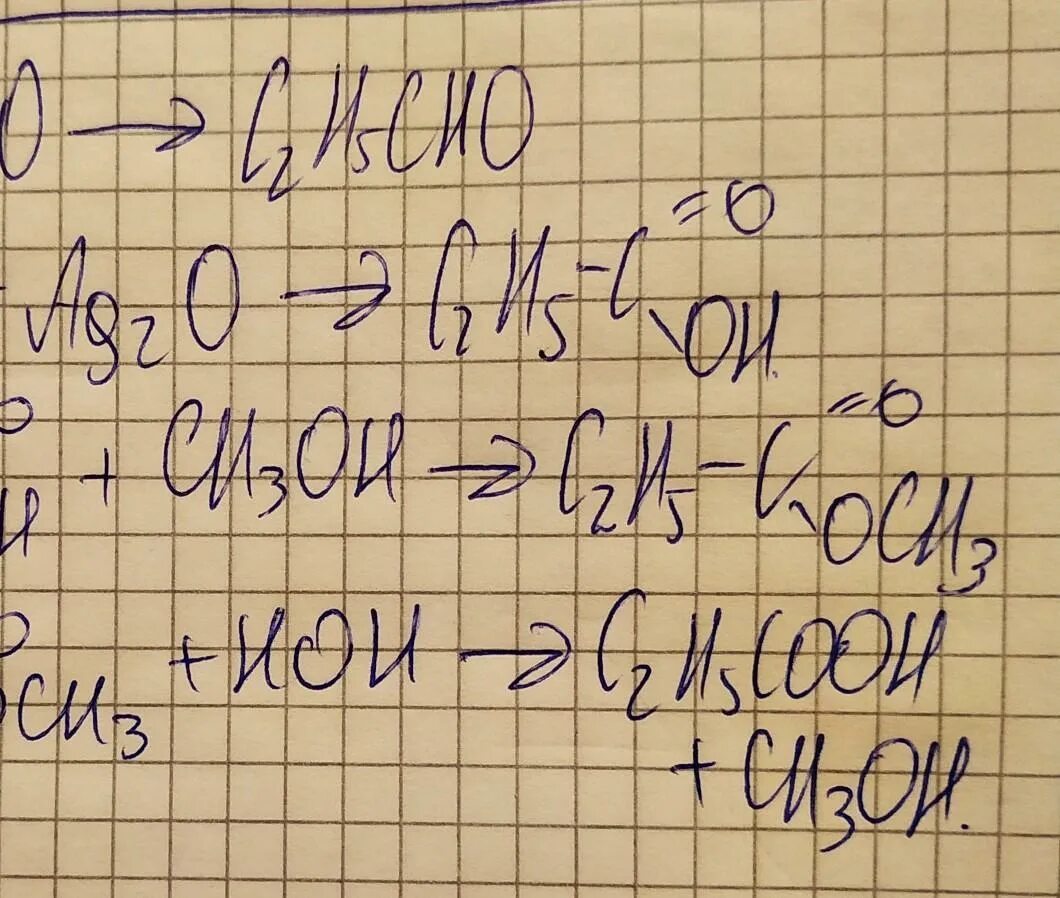 O → C₂H₅CHO
Ag₂O → C₂H₅-C=O\OH.
O
H + CH₃OH → C₂H₅-C=O\OCH₃
O
OCH₃ + HOH → C₂H₅COOH
+ CH₃OH.